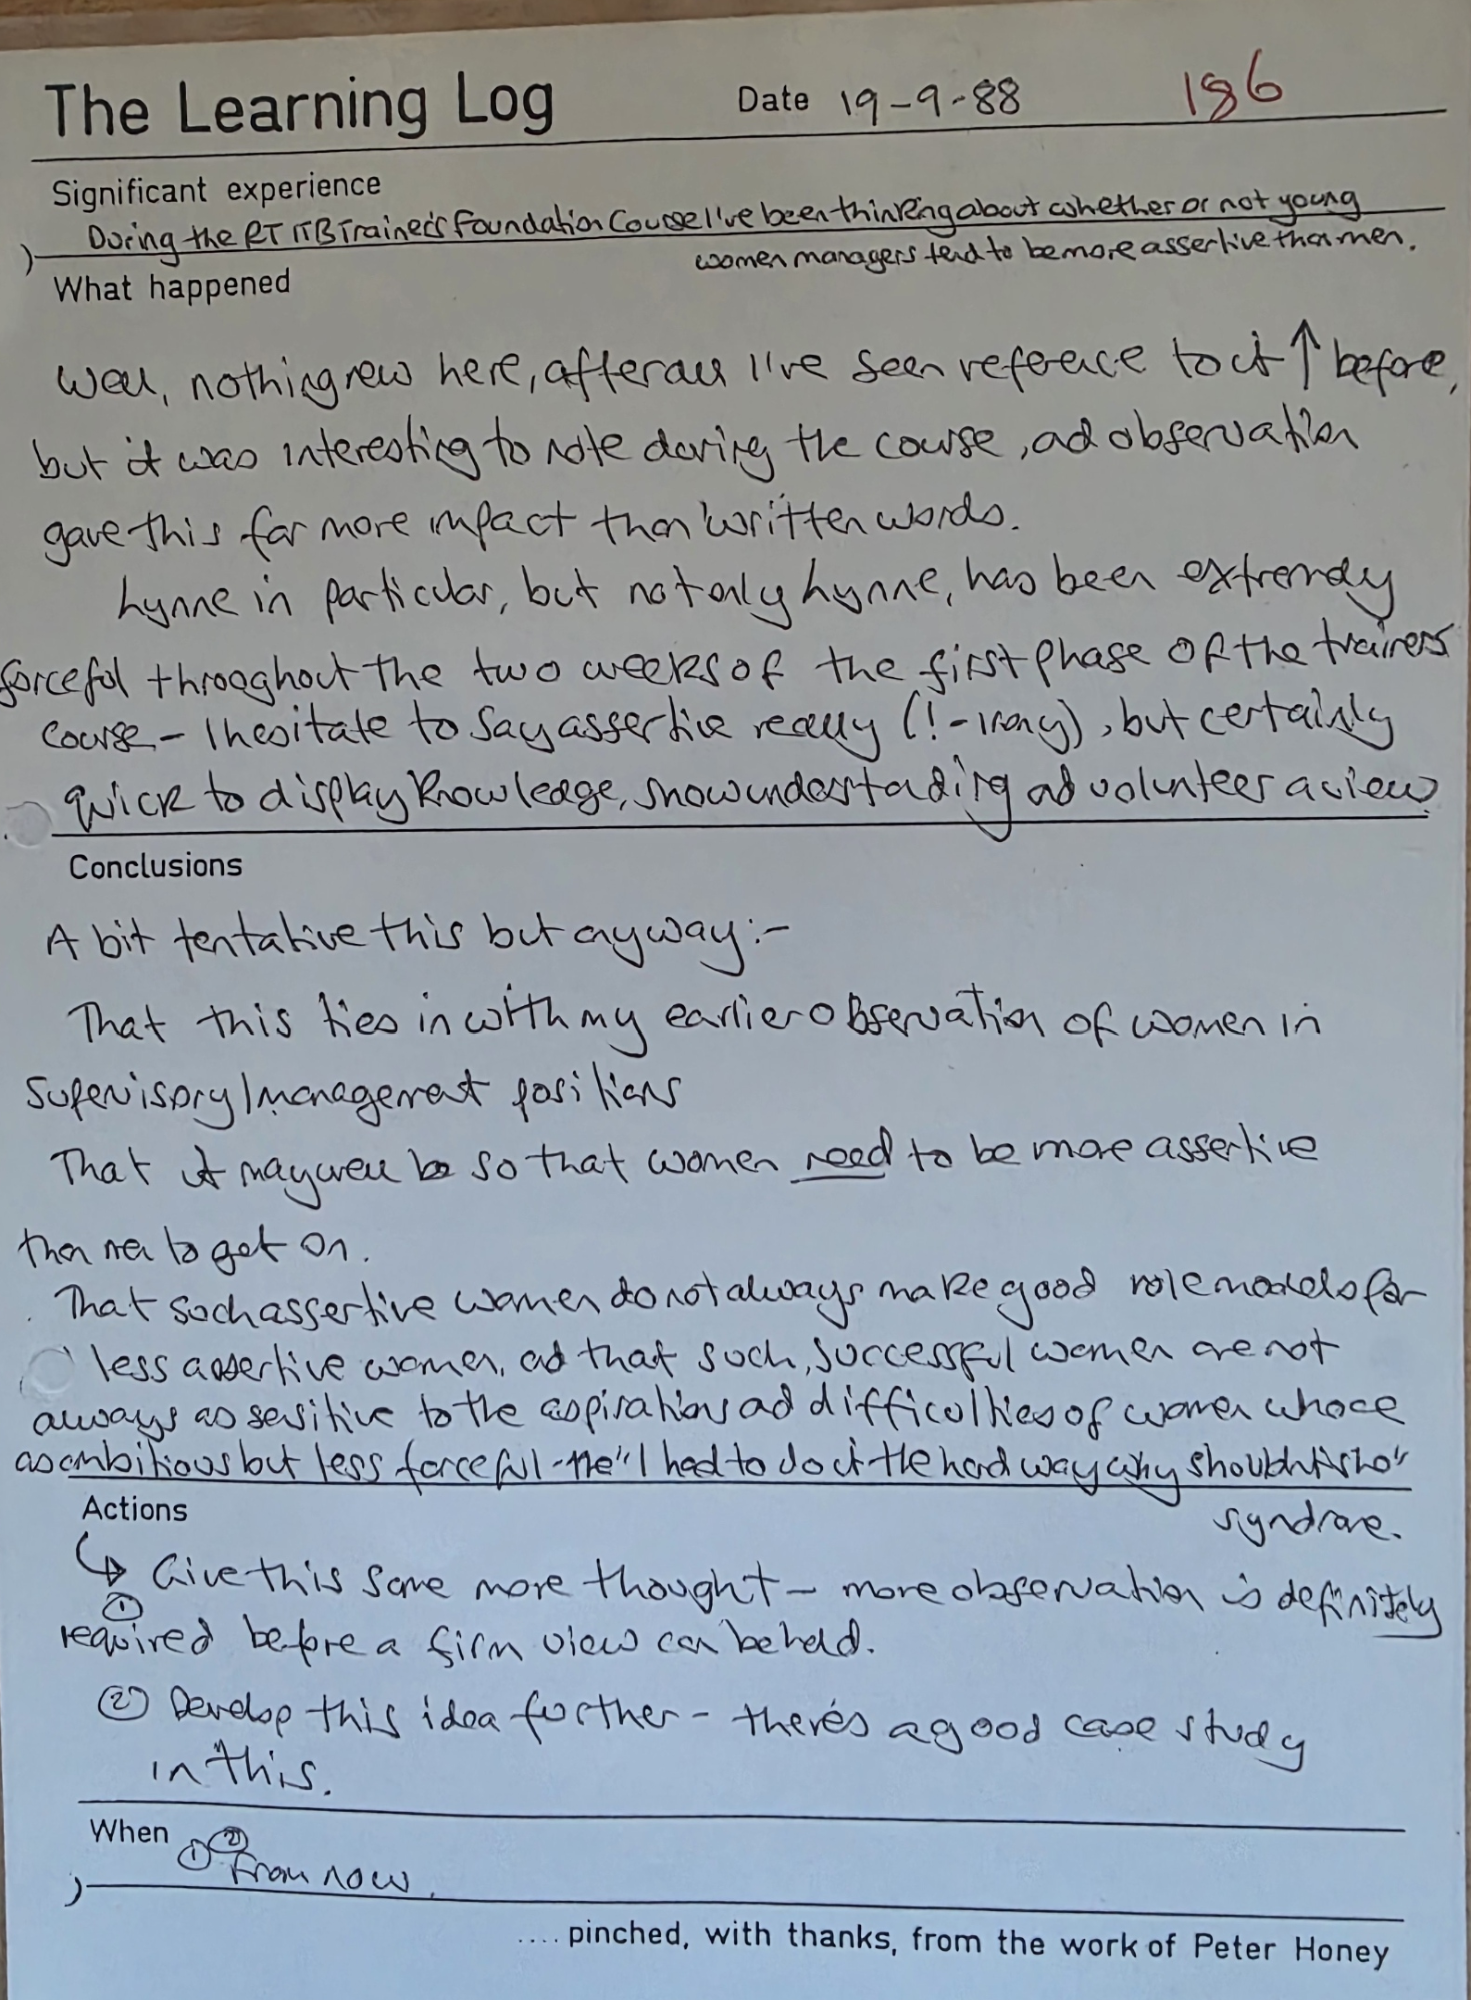 The Learning Log Date 19-9-88 186
Significant experience
During the RTITB Trainers Foundation Course I've been thinking about whether or not young
women managers tend to be more assertive than men.
What happened
Well, nothing new here, after all I've seen reference to it ↑ before,
but it was interesting to note during the course, and observation
gave this far more impact than written words.
Lynne in particular, but not only Lynne, has been extremely
forceful throughout the two weeks of the first phase of the trainers
course - I hesitate to say assertive really (! - irony), but certainly
quick to display knowledge, show understanding and volunteer a view
Conclusions
A bit tentative this but anyway:-
That this ties in with my earlier observation of women in
supervisory/management positions
That it may well be so that women need to be more assertive
than men to get on.
That such assertive women do not always make good role models for
less assertive women, and that such, successful women are not
always as sensitive to the aspirations and difficulties of women who are
as ambitious but less forceful - the "I had to do it the hard way why shouldn't she"
syndrome.
Actions
↳ Give this some more thought - more observation is definitely
① required before a firm view can be held.
② Develop this idea further - there's a good case study
in this.
When ① ② From now.
.... pinched, with thanks, from the work of Peter Honey